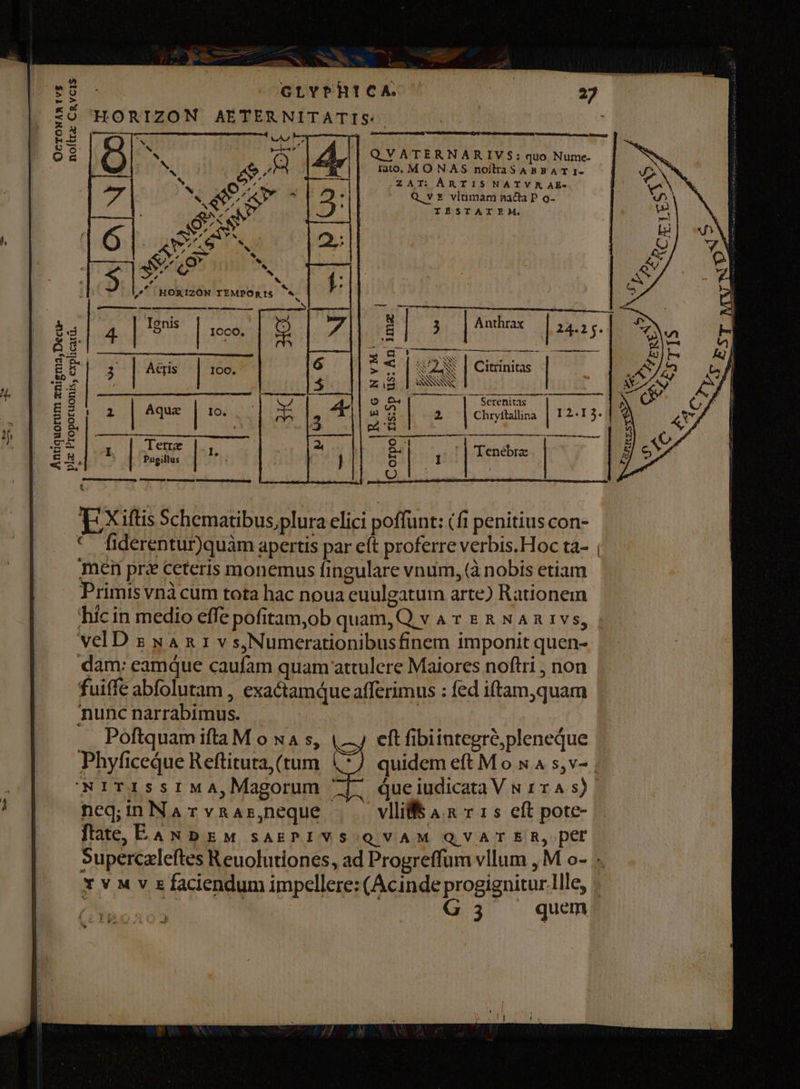 GLYPHICA. 27
OCTONARIVS
noſtræ CRVCIS
HORIZON AETERNITATIS.
8
7
6
5
METAMORPHOSIS
CONSVMMATA
HORIZON TEMPORIS
4
3:
2:
1:
QVATERNARIVS: quo Nume-
rato, MONAS noſtra SABBATI-
ZAT: ARTIS NATVRAE-
QVE vltimam nacta Po-
TESTATEM.
SVPERCÆLESTIS
Antiquorum ænigma, Decu-
plæ Proportionis, explicatū.
4 Ignis 1000.
3 Aëris 100.
2 Aquæ 10.
1 Terræ Pugillus 1.
7
6
5
4
3
2
1
REGNVM
Corporis: Sp us: An imæ
3 Anthrax 24.25.
2 Citrinitas
2 Serenitas Chryſtallina 12.13.
1 Tenebræ
TERRESTRIS
CÆLESTIS
SIC FACTVS EST MVNDVS
EX iſtis Schematibus, plura elici poſſunt: (ſi penitius con-
ſiderentur) quàm apertis par eſt proferre verbis. Hoc ta-
men præ ceteris monemus ſingulare vnum, (à nobis etiam
Primis vnà cum tota hac noua euulgatum arte) Rationem
hîc in medio eſſe poſitam, ob quam, QVATERNARIVS,
vel DENARIVS, Numerationibus finem imponit quen-
dam: eamq́ue cauſam quam attulere Maiores noſtri, non
fuiſſe abſolutam, exactamq́ue aſſerimus: ſed iſtam, quam
nunc narrabimus.
Poſtquam iſta MONAS, eſt ſibi integrè, pleneq́ue
Phyſiceq́ue Reſtituta, (tum quidem eſt MONAS, V-
NITISSIMA, Magorum q́ue iudicata VNITAS)
neq; in NATVRAE, neque vlliſs ARTIS eſt pote-
ſtate, EANDEM SAEPIVS QVAM QVATER, per
Supercæleſtes Reuolutiones, ad Progreſſum vllum, MO-
TVMVE faciendum impellere: (Ac inde progignitur Ille,
G 3 quem